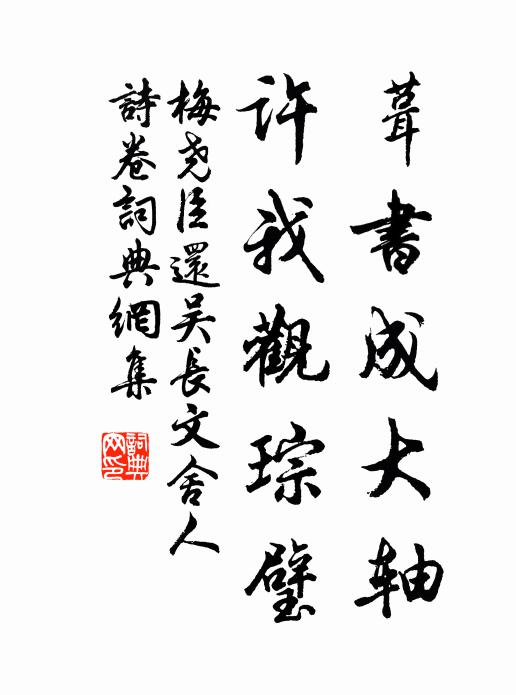 葺書成大軸
許我觀琮璧
梅尧臣還吴長文舍人
詩卷詞典網集
詞典网印